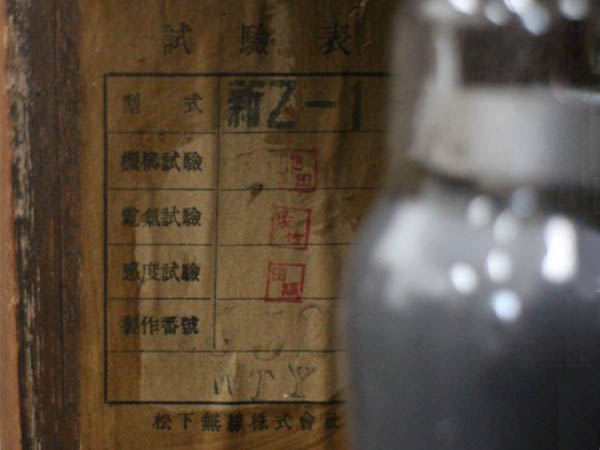 試驗表
型式 新Z-1
機構試驗 池田
電氣試驗
感度試驗
製作番號
WTY
松下無線株式會社